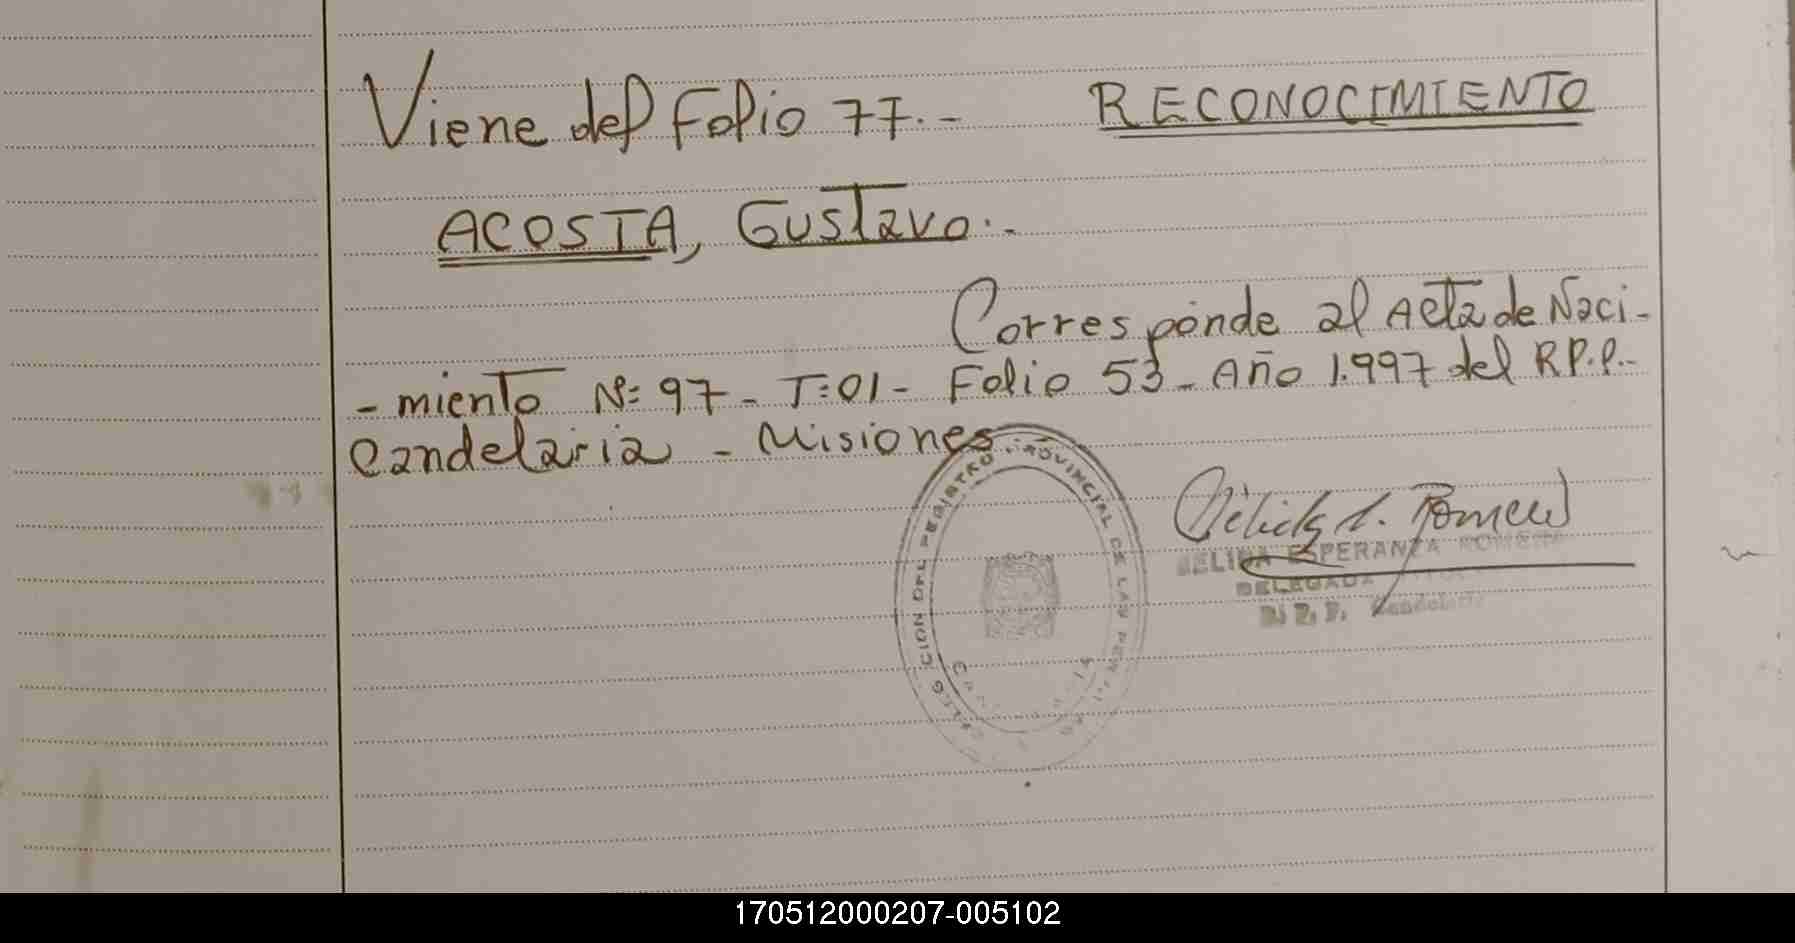 Viene del Folio 77.- RECONOCIMIENTO
ACOSTA, Gustavo.-
Corresponde al Acta de Naci-
-miento Nº: 97 - T:01 - Folio 53 - Año 1.997 del R.P.P.-
Candelaria - Misiones
CION DEL REGISTRO PROVINCIAL DE LAS PERSONAS
ESPERANZA ROMERO
DELEGADA
R. P. P. Candelaria
170512000207-005102